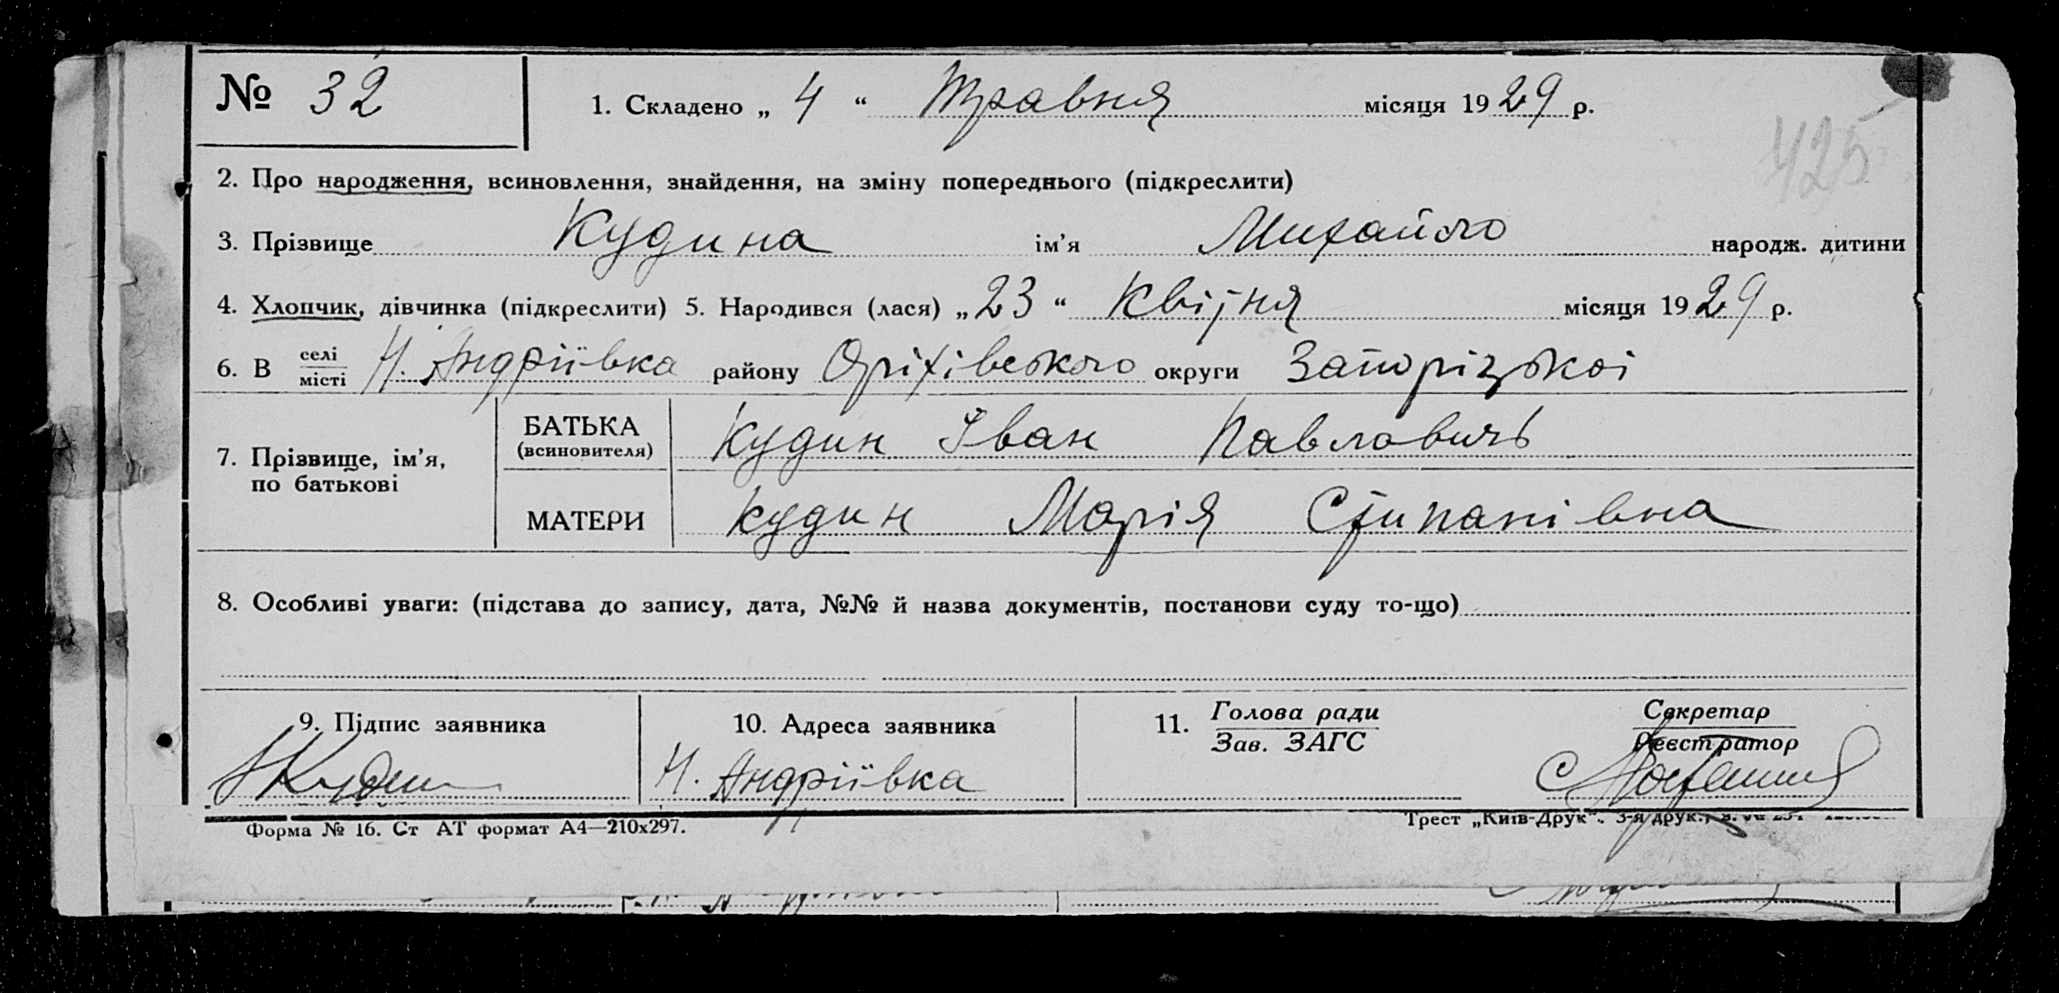 № 32
1. Складено „ 4 “ Травня місяця 1929 р.
425
2. Про народження, всиновлення, знайдення, на зміну попереднього (підкреслити)
3. Прізвище Кудина ім’я Михайло народж. дитини
4. Хлопчик, дівчинка (підкреслити) 5. Народився (лася) „23“ Квітня місяця 1929 р.
6. В селі місті Н. Андріївка району Оріхівського округи Запорізькоі
7. Прізвище, ім’я, по батькові
БАТЬКА (всиновителя) Кудин Іван Павловичь
МАТЕРИ Кудин Марія Стипанівна
8. Особливі уваги: (підстава до запису, дата, №№ й назва документів, постанови суду то-що)
9. Підпис заявника
10. Адреса заявника
11. Голова ради
Зав. ЗАГС
Секретар
Реєстратор
Кудин
Н. Андріївка
Форма № 16. Ст АТ формат А4—210х297.
Трест „Київ-Друк“. 3-я друк.,